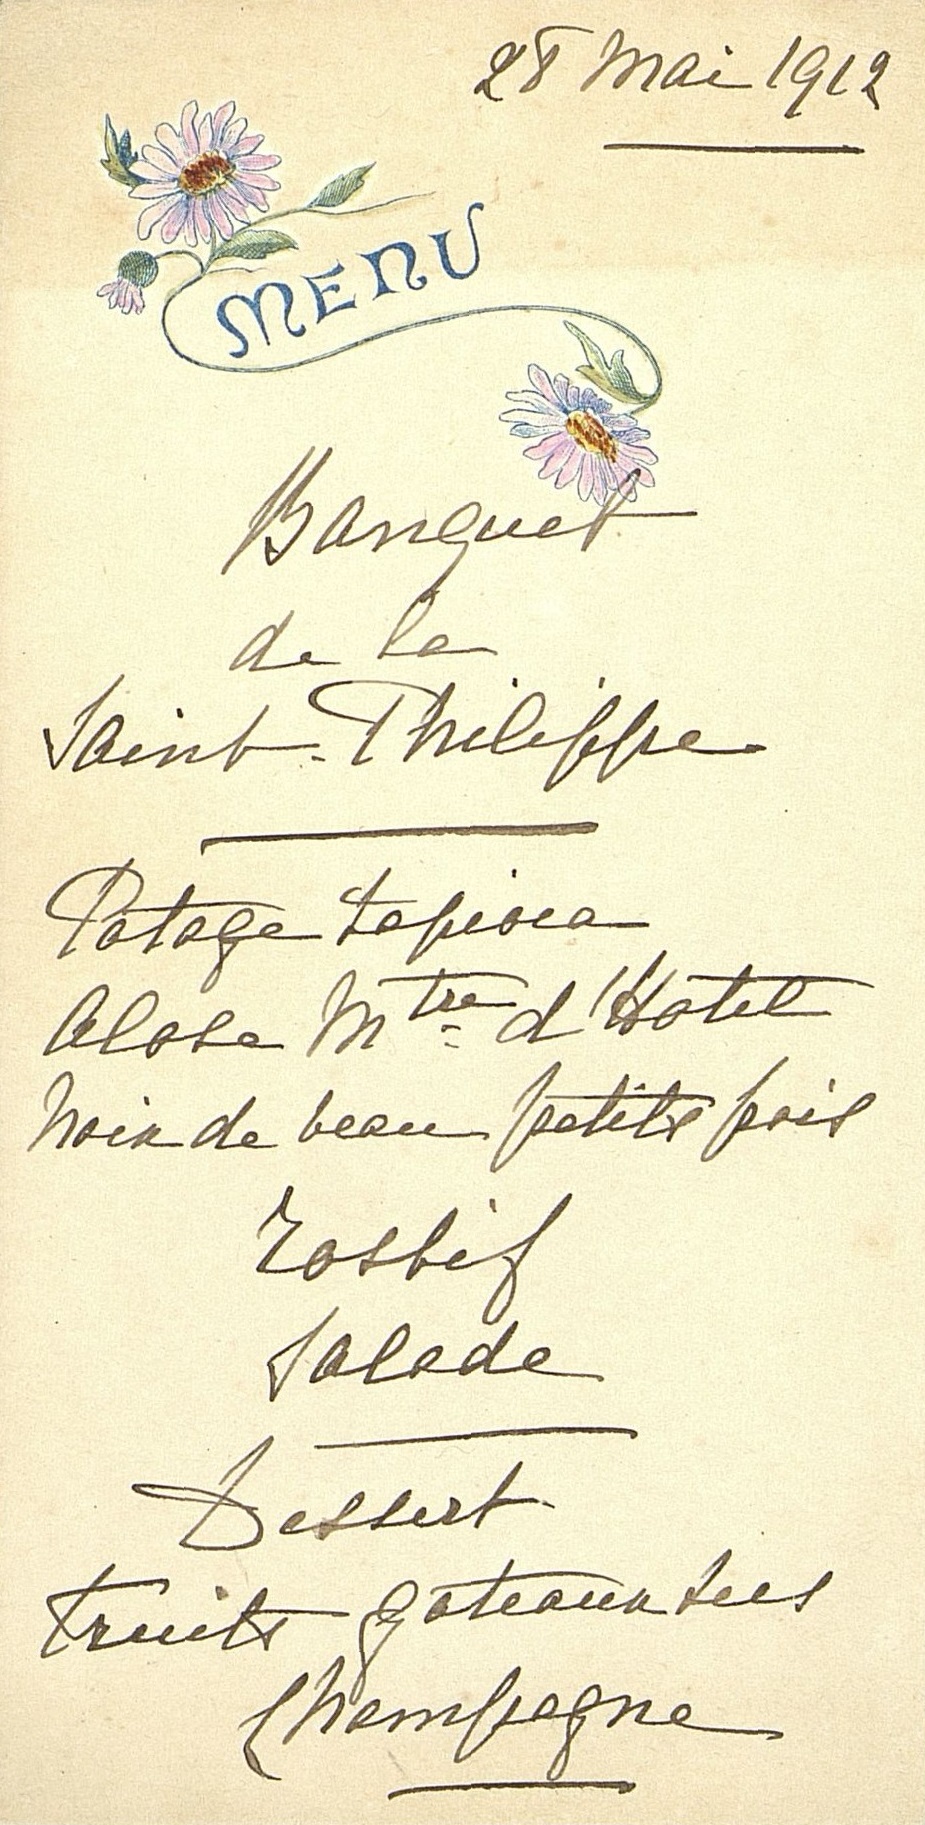 28 Mai 1912
MENU
Banquet
de la
Saint-Philippe
Potage tapioca
Alose Mtre d'Hotel
Noix de veau petits pois
rosbif
Salade
Dessert
Fruits gateaux secs
Champagne